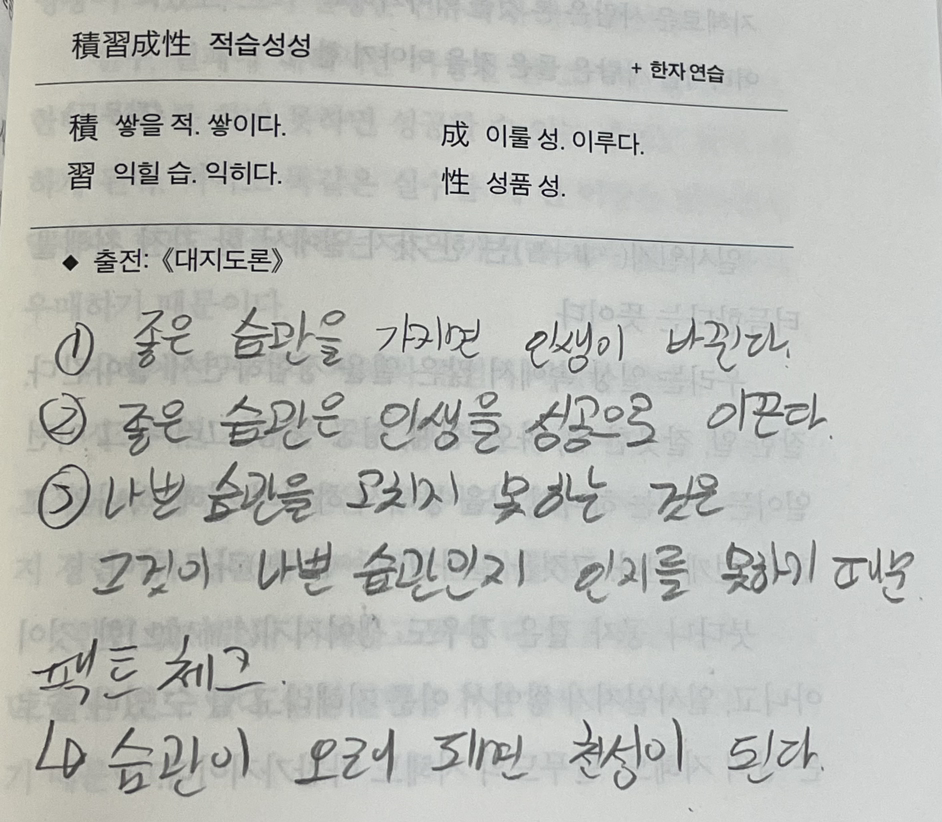 積習成性 적습성성
+ 한자 연습
積 쌓을 적. 쌓이다.
成 이룰 성. 이루다.
習 익힐 습. 익히다.
性 성품 성.
◆ 출전: 《대지도론》
① 좋은 습관을 가지면 인생이 바뀐다.
② 좋은 습관은 인생을 성공으로 이끈다.
③ 나쁜 습관을 고치지 못하는 것은
그것이 나쁜 습관인지 인지를 못하기 때문.
팩트 체크.
↳ 습관이 오래 되면 천성이 된다.